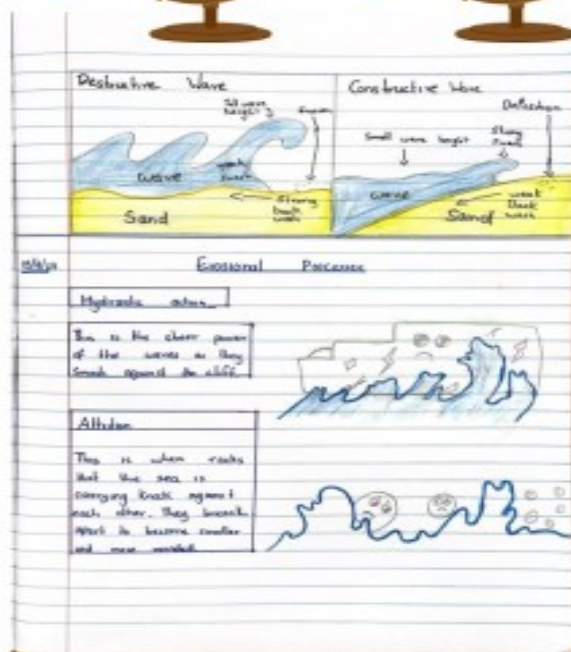 Destructive Wave
Tall wave
height
Erosion
wave
weak
swash
Strong
back
wash
Sand
Constructive Wave
Deposition
Small wave height
Strong
swash
wave
weak
back
wash
Sand
Erosional Processes
Hydraulic action
This is the sheer power
of the waves as they
smash against the cliff.
Attrition
This is when rocks
that the sea is
carrying knock against
each other. They break
apart to become smaller
and more rounded.